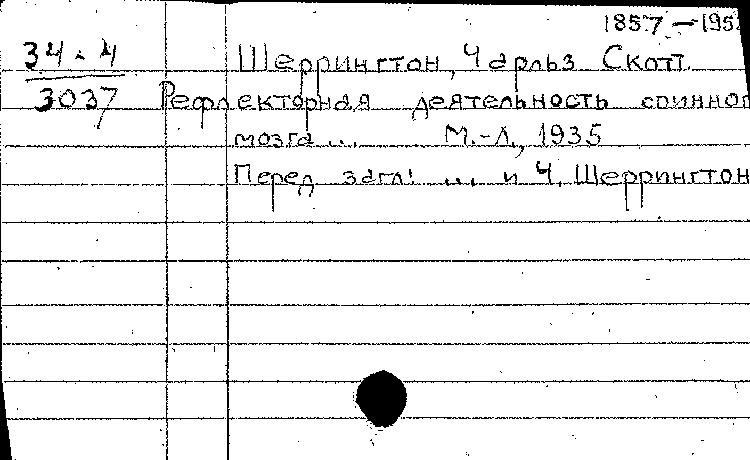 1857 – 195
34-4 Шеррингтон, Чарльз Скотт.
3037 Рефлекторная деятельность спинног
мозга ... М.-Л., 1935
Перед загл: ... и Ч. Шеррингтон